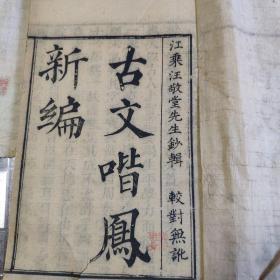 江乘汪敬堂先生鈔輯　較對無訛
古文喈鳳
新編